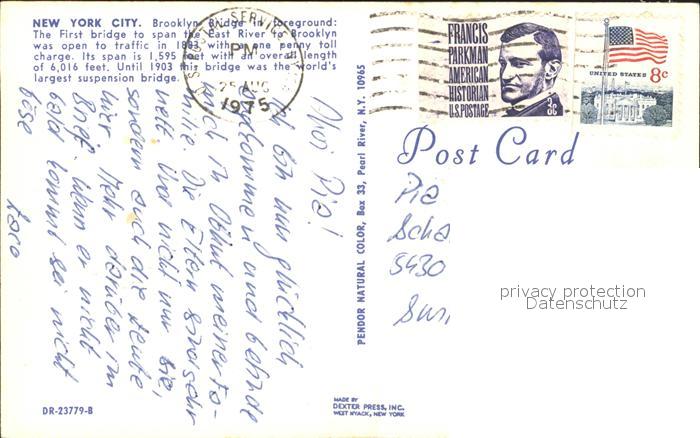 NEW YORK CITY. Brooklyn Bridge in foreground:
The First bridge to span the East River to Brooklyn
was open to traffic in 1883 with a one penny toll
charge. Its span is 1,595 feet with an overall length
of 6,016 feet. Until 1903 this bridge was the world's
largest suspension bridge.
SERVICE
PM
25 AUG
1975
FRANCIS
PARKMAN
AMERICAN
HISTORIAN
U.S.POSTAGE
3c
UNITED STATES 8c
Post Card
Pia
5430
privacy protection
Datenschutz
PENDOR NATURAL COLOR, Box 33, Pearl River, N.Y. 10965
Pia!
Ich bin nun glücklich
angekommen und befinde
mich in Obhut meiner Fa-
milie. Die Eltern sind sehr
nett. Aber nicht nur sie,
sondern auch die Leute
hier. Mehr darüber im
Brief. Wenn er nicht
bald kommt sei nicht
böse
DR-23779-B
MADE BY
DEXTER PRESS, INC.
WEST NYACK, NEW YORK